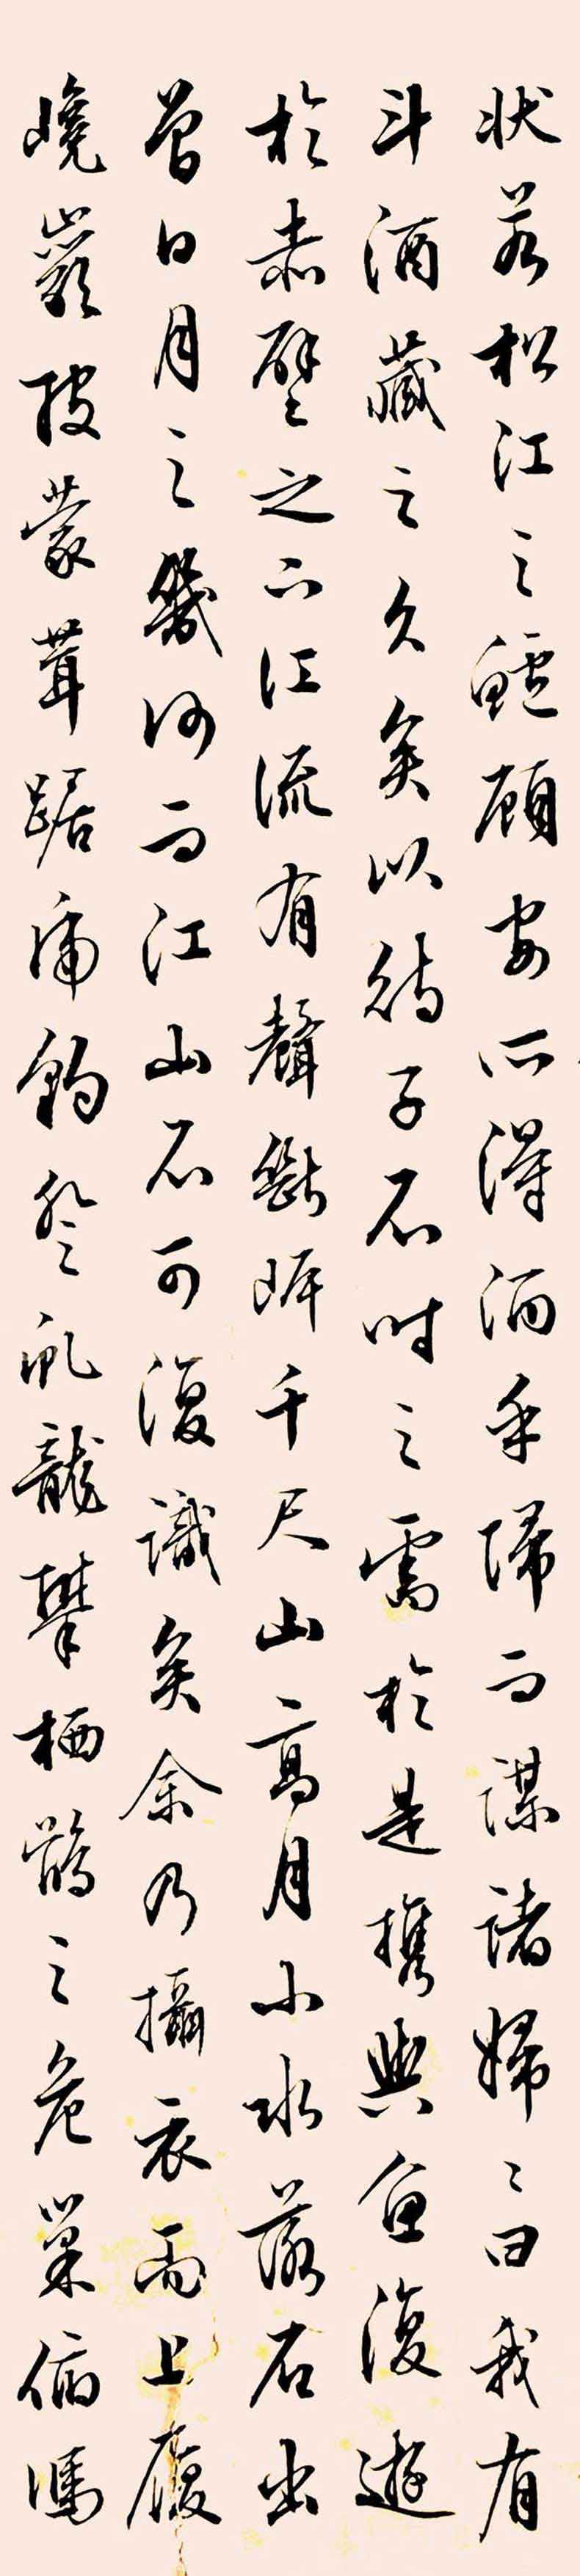 狀若松江之鱸顧安所得酒乎歸而謀諸婦〻曰我有
斗酒藏之久矣以待子不時之需於是攜與魚復遊
於赤壁之下江流有聲斷岸千尺山高月小水落石出
曾日月之幾何而江山不可復識矣余乃攝衣而上履
巉巖披蒙茸踞虎豹登虬龍攀栖鶻之危巢俯馮